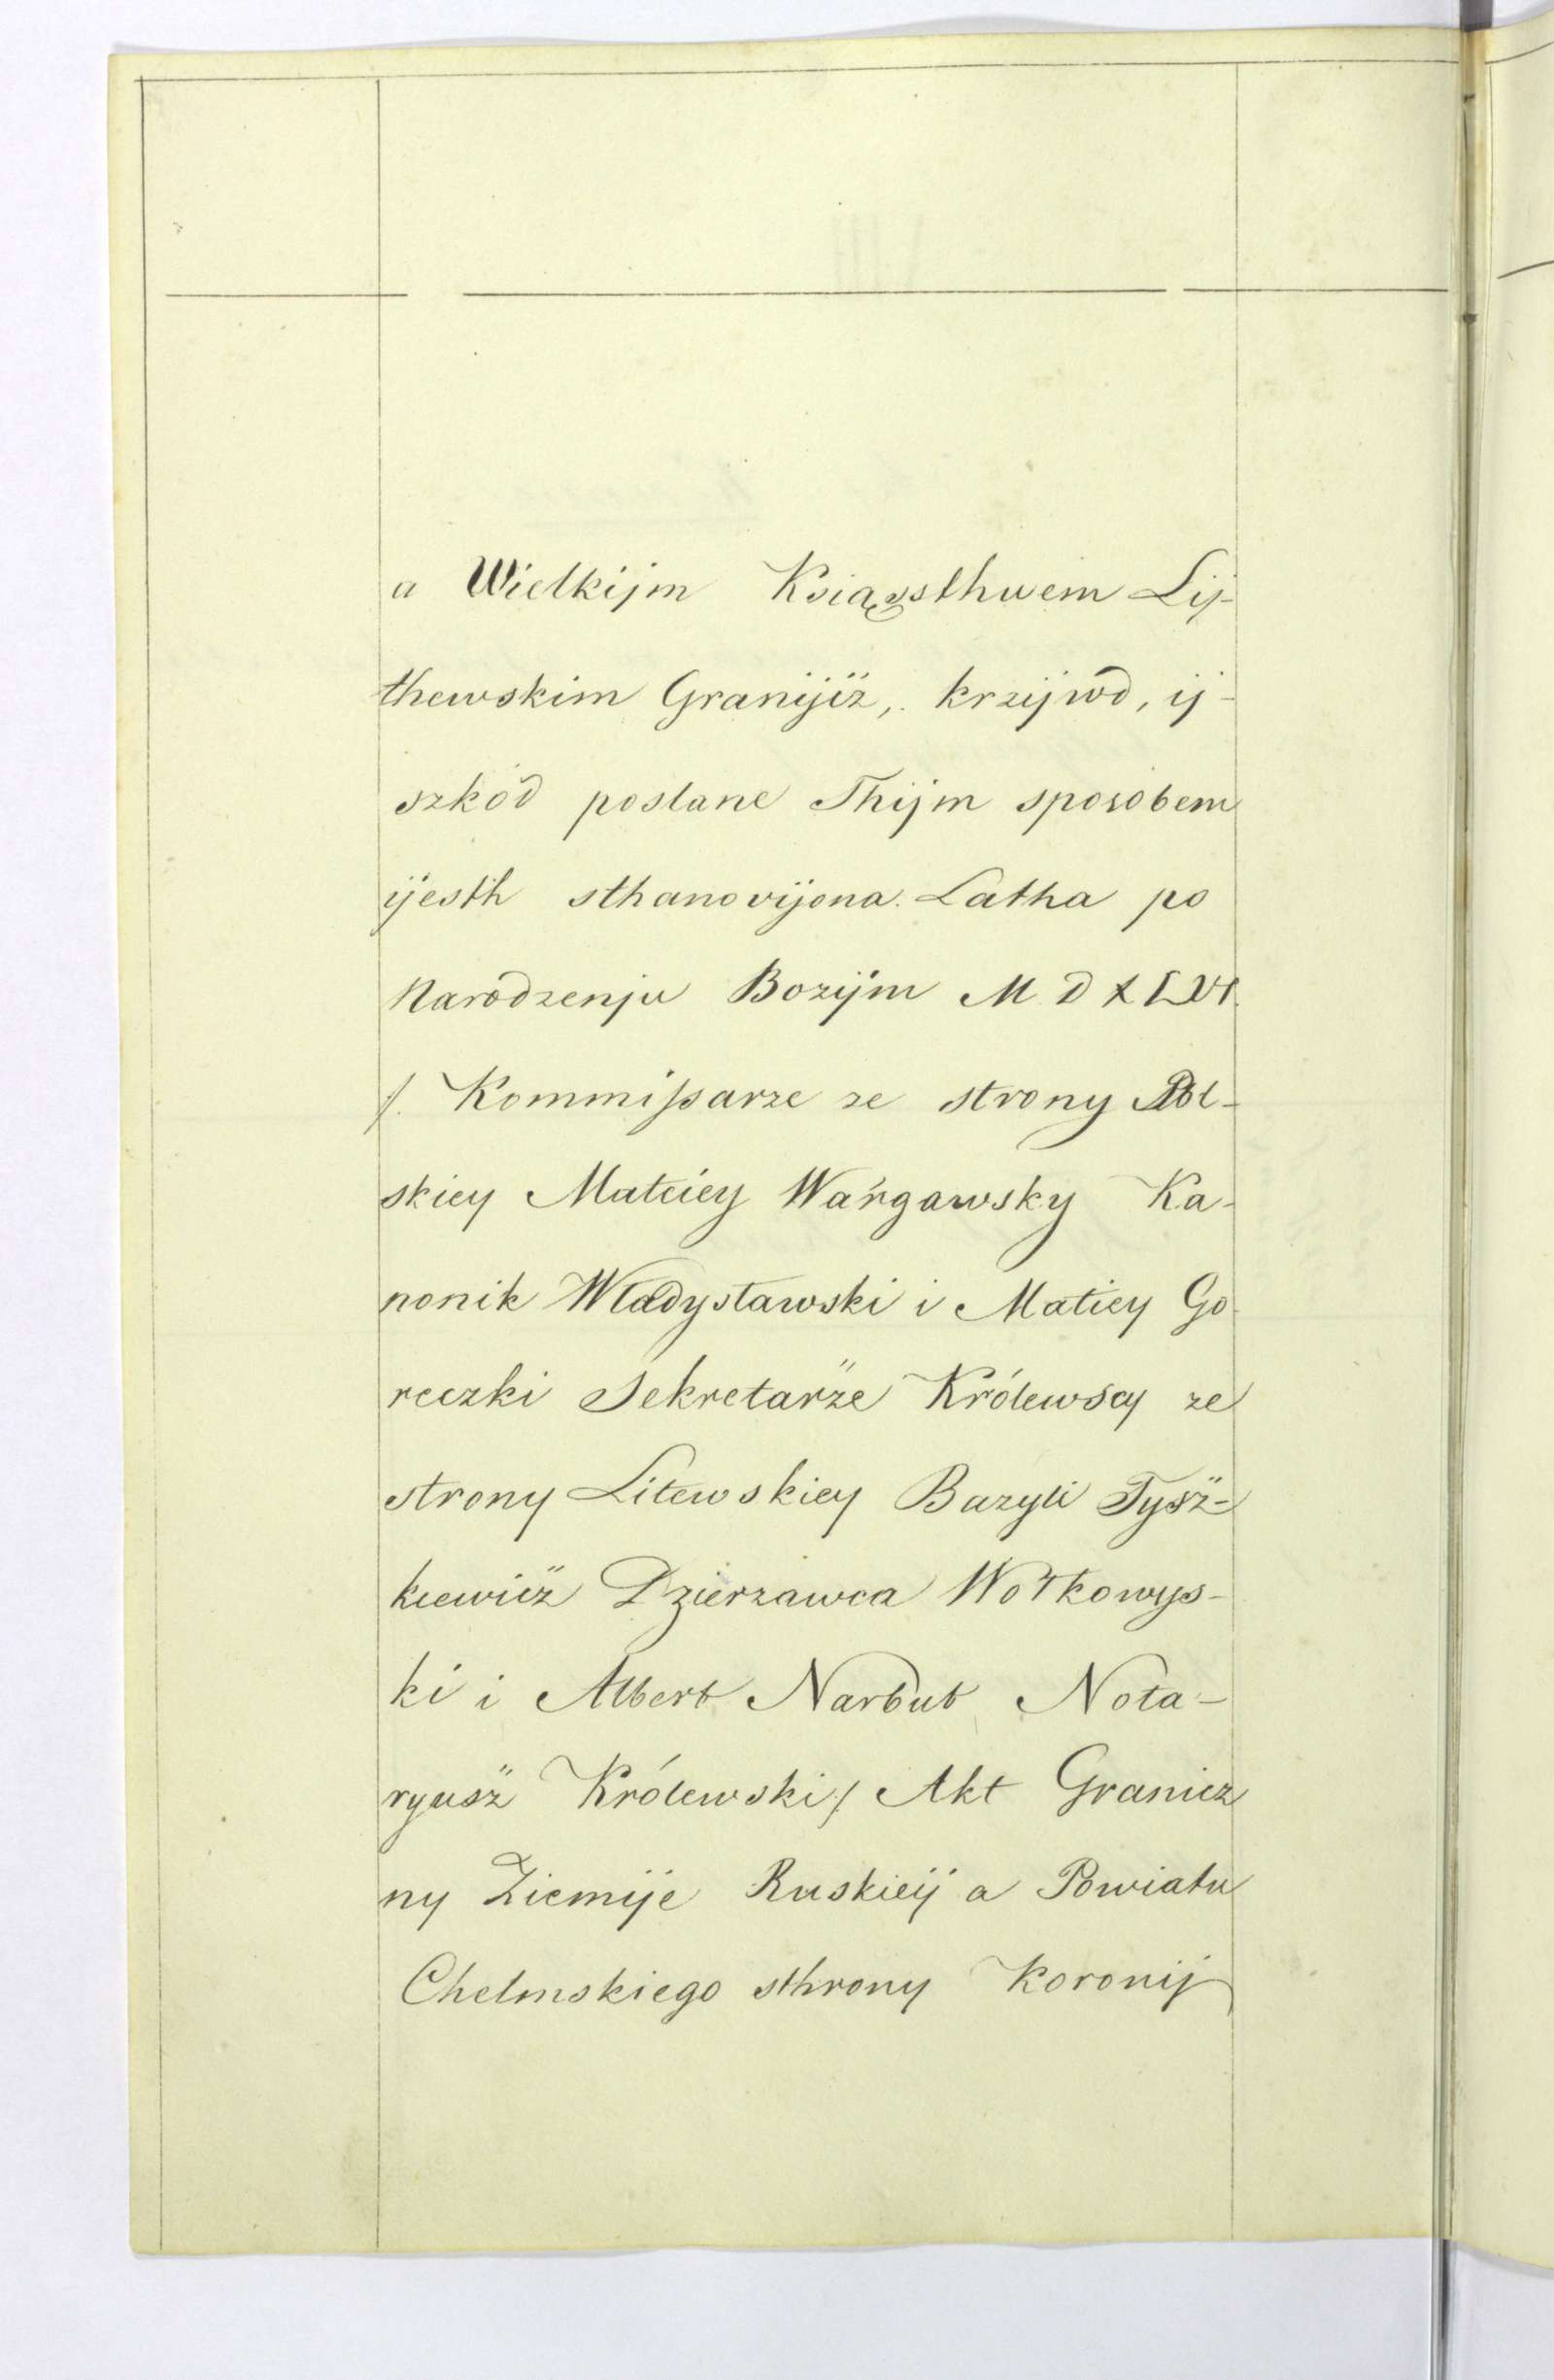 a Wielkijm Książsthwem Lij-
thewskim Granijcz, krzijwd, ij-
szkód poslane Thijm sposobem
ijesth sthanovijona. Latha po
Narodzenju Bozijm M D X L VI.
/. Kommissarze ze strony Pol-
skiey Mateiey Wargawsky Ka-
nonik Władysławski i Matiey Go-
reczki Sekretarże Królewscy ze
strony Litewskiey Bazyli Tysż-
kiewicż Dzierzawca Wołkowys-
ki i Albert Narbut Nota-
ryusż Królewski/ Akt Granicz
ny Ziemije Ruskieij a Powiatu
Chelmskiego sthrony Koronij